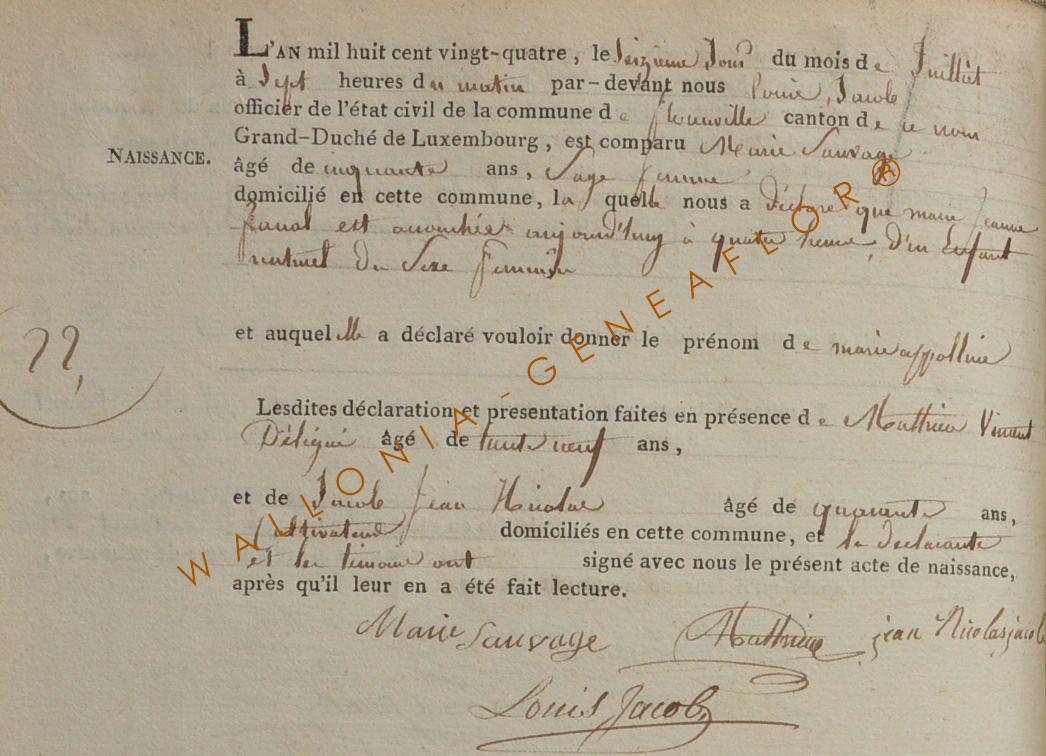 L'AN mil huit cent vingt-quatre, le Seizieme Jour du mois de Juillet
à Sept heures du matin par-devant nous Louis, Jacob
officier de l'état civil de la commune de florenville canton de ce nom
Grand-Duché de Luxembourg, est comparu Marie Sauvage
NAISSANCE.
âgé de cinquante ans, Sage femme
domicilié en cette commune, la quelle nous a déclaré que marie Jeanne
est accouchée aujourd'huy à quatre heure, d'un Enfant
naturel du Sexe feminin
22,
et auquel elle a déclaré vouloir donner le prénom de marie appolline
Lesdites déclaration et présentation faites en présence de Mathieu Vincent
Délégué âgé de trente neuf ans,
et de Jacob Jean Nicolas âgé de quarante ans,
Cultivateur domiciliés en cette commune, et la declarante
et les temoins ont signé avec nous le présent acte de naissance,
après qu'il leur en a été fait lecture.
Marie Sauvage Mathieu jean Nicolas jacob
Louis Jacob
WALLONIA-GENEAFLOR®